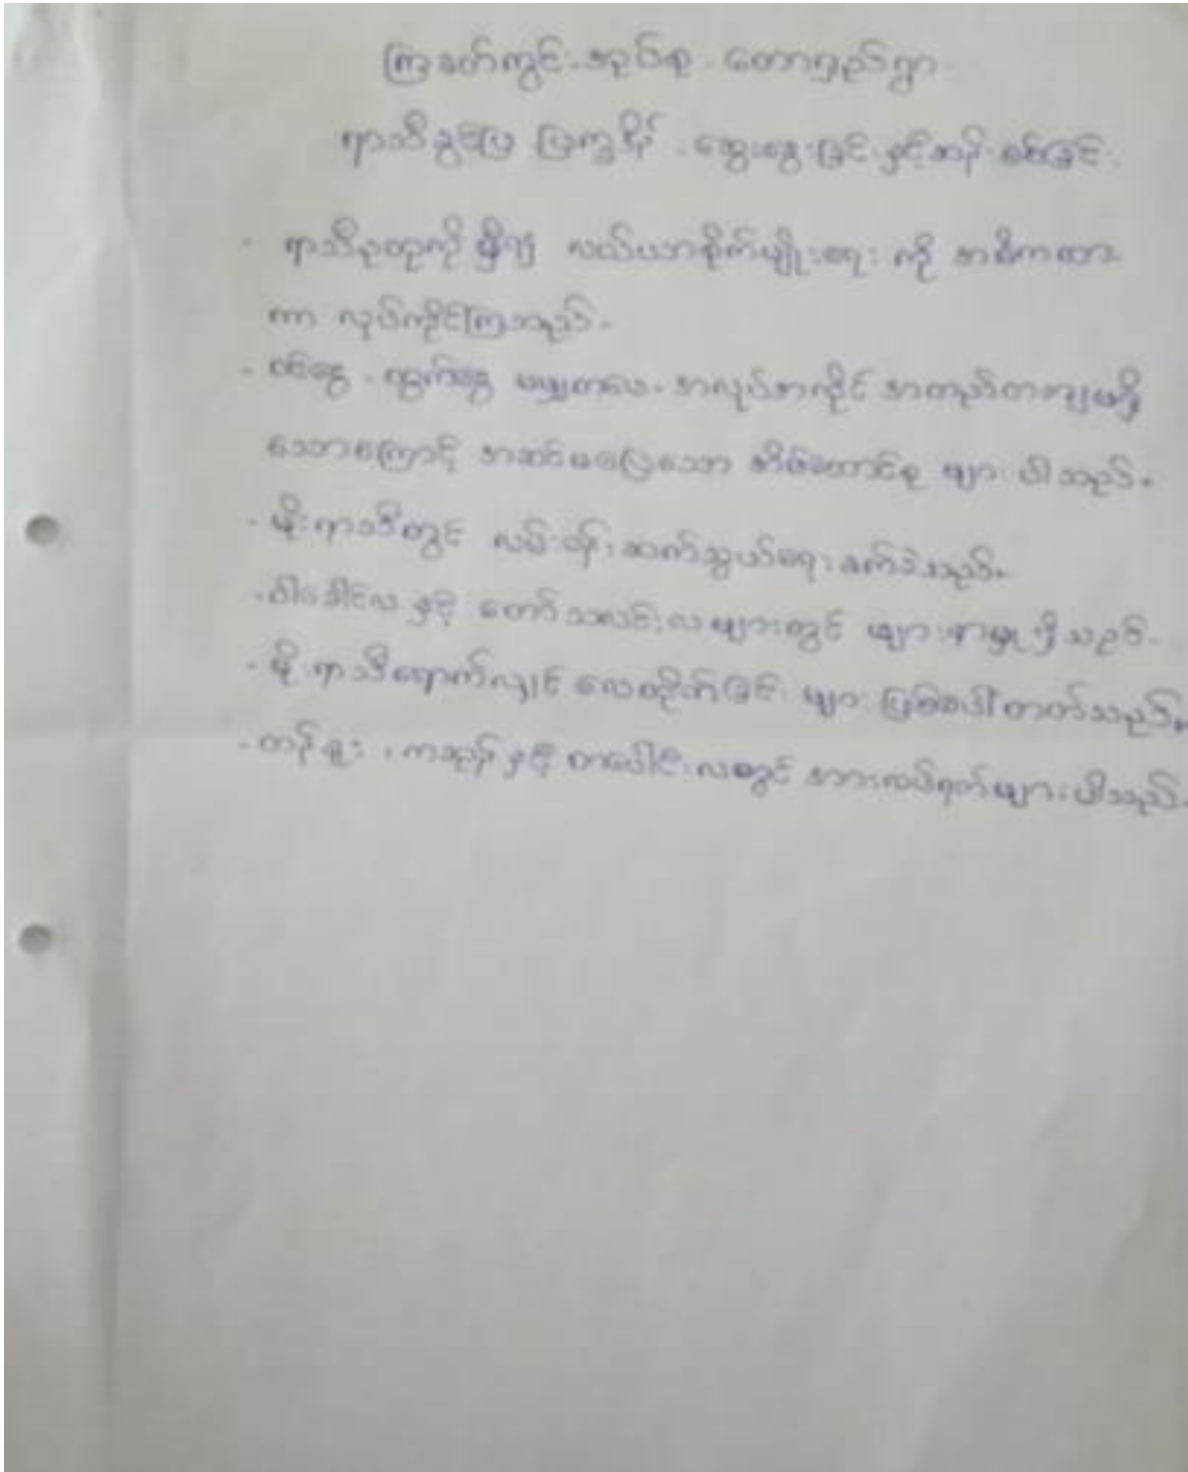 ကြခတ်ကွင်း အုပ်စု - တောရှည်ရွာ
ရာသီခွင်ပြ ပြက္ခဒိန် - ဆွေးနွေးခြင်း နှင့်ဆန်းစစ်ခြင်း
- ရာသီဥတုကို မှီ၍ လယ်ယာစိုက်ပျိုးရေး ကို အဓိကထား
ကာ လုပ်ကိုင်ကြသည်။
- ဝင်ငွေ - ထွက်ငွေ မမျှတပေ။ အလုပ်အကိုင် အတည်တကျမရှိ
သောကြောင့် အဆင်မပြေသော အိမ်ထောင်စု များ ပါသည်။
- မိုးရာသီတွင် လမ်းပန်းဆက်သွယ်ရေး ခက်ခဲသည်။
- ဝါခေါင်လ နှင့် တော်သလင်းလများတွင် ဖျားနာမှု ရှိသည်။
- မိုးရာသီရောက်လျှင် လေတိုက်ခြင်း များ ဖြစ်ပေါ်တတ်သည်။
- တန်ခူး ၊ ကဆုန် နှင့် တပေါင်းလတွင် အားလပ်ရက်များ ပါသည်။